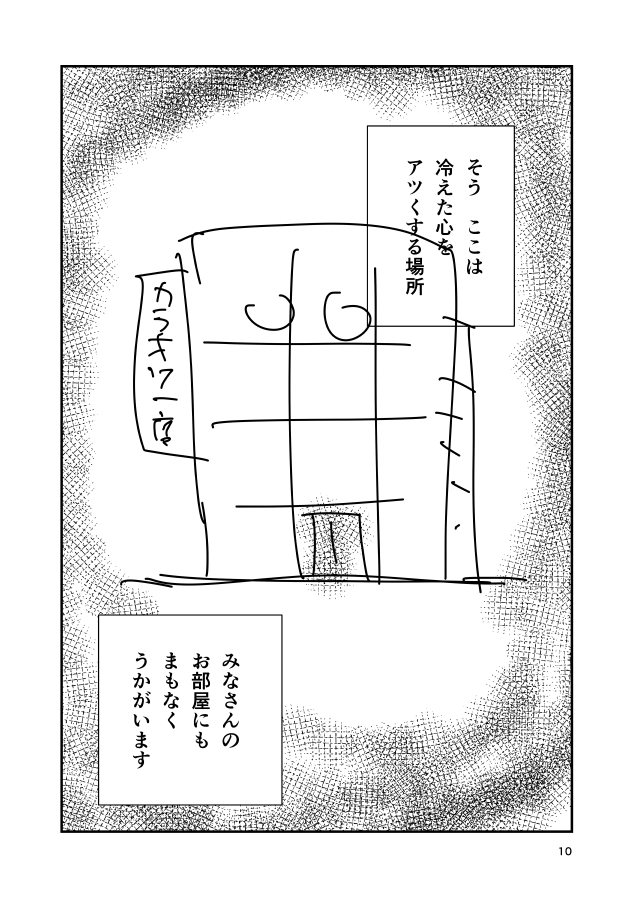 そう　ここは
冷えた心を
アツくする場所
カラオケ一番
みなさんの
お部屋にも
まもなく
うかがいます
10